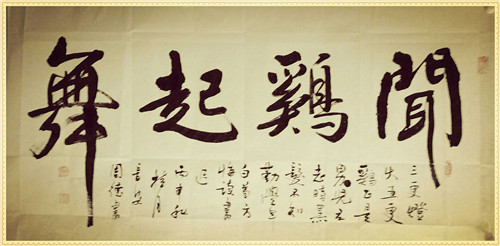 聞鷄起舞
三更燈
火五更
鷄正是
男兒立
志時黑
髮不知
勤學早
白首方
悔讀書
遲
丙申秋
月
長安
周 書